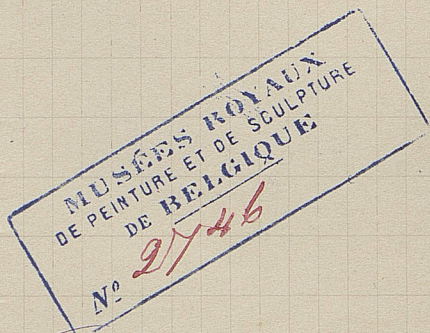 MUSÉES ROYAUX
DE PEINTURE ET DE SCULPTURE
DE BELGIQUE
Nº 2746